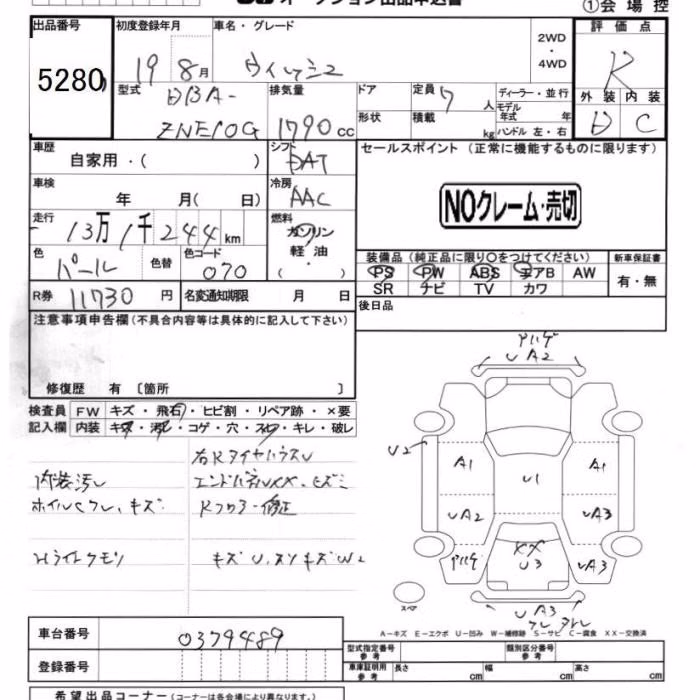 オークション出品申込書
①会場控
出品番号 初度登録年月 車名・グレード 2WD・4WD 評価点
5280 19 8月 ウィッシュ R
型式 DBA-ZNE10G 排気量 1790 cc ドア 定員 7人 ディーラー・並行 外装 内装
形状 積載 kg モデル年式 年 ハンドル 左・右 D C
車歴 自家用・( ) シフト DAT セールスポイント (正常に機能するものに限ります)
車検 年 月( 日) 冷房 AAC
NOクレーム・売切
走行 13万1千244km 燃料 ガソリン 軽油 ( ・ )
色 パール 色替 色コード 070
装備品(純正品に限り○をつけてください) 新車保証書
PS PW ABS エアB AW 有・無
SR ナビ TV カワ
R券 11730 円 名変通知期限 月 日 後日品
注意事項申告欄(不具合内容等は具体的に記入して下さい)
修復歴 有 〔箇所 〕
検査員 FW キズ・飛石・ヒビ割・リペア跡・×要
記入欄 内装 キズ・汚れ・コゲ・穴・スレ・キレ・破レ
右RタイヤハウスU
内装汚レ エンドパネルXX、ヒズミ
ホイルCクレ、キズ Rフロアー修正
Hライトクモリ キズU、スソキズW2
アハゲ
UA2
U2
A1 U1 A1
UA2 UA3
アハゲ XX U3 UA3
スペア
UA3
A-キズ E-エクボ U-凹み W-補修跡 S-サビ C-腐食 XX-交換済
車台番号 0379489
登録番号
型式指定番号 参考 類別区分番号 参考
車庫証明用 参考 長さ cm 幅 cm 高さ cm
希望出品コーナー(コーナーは各会場により異なります。)